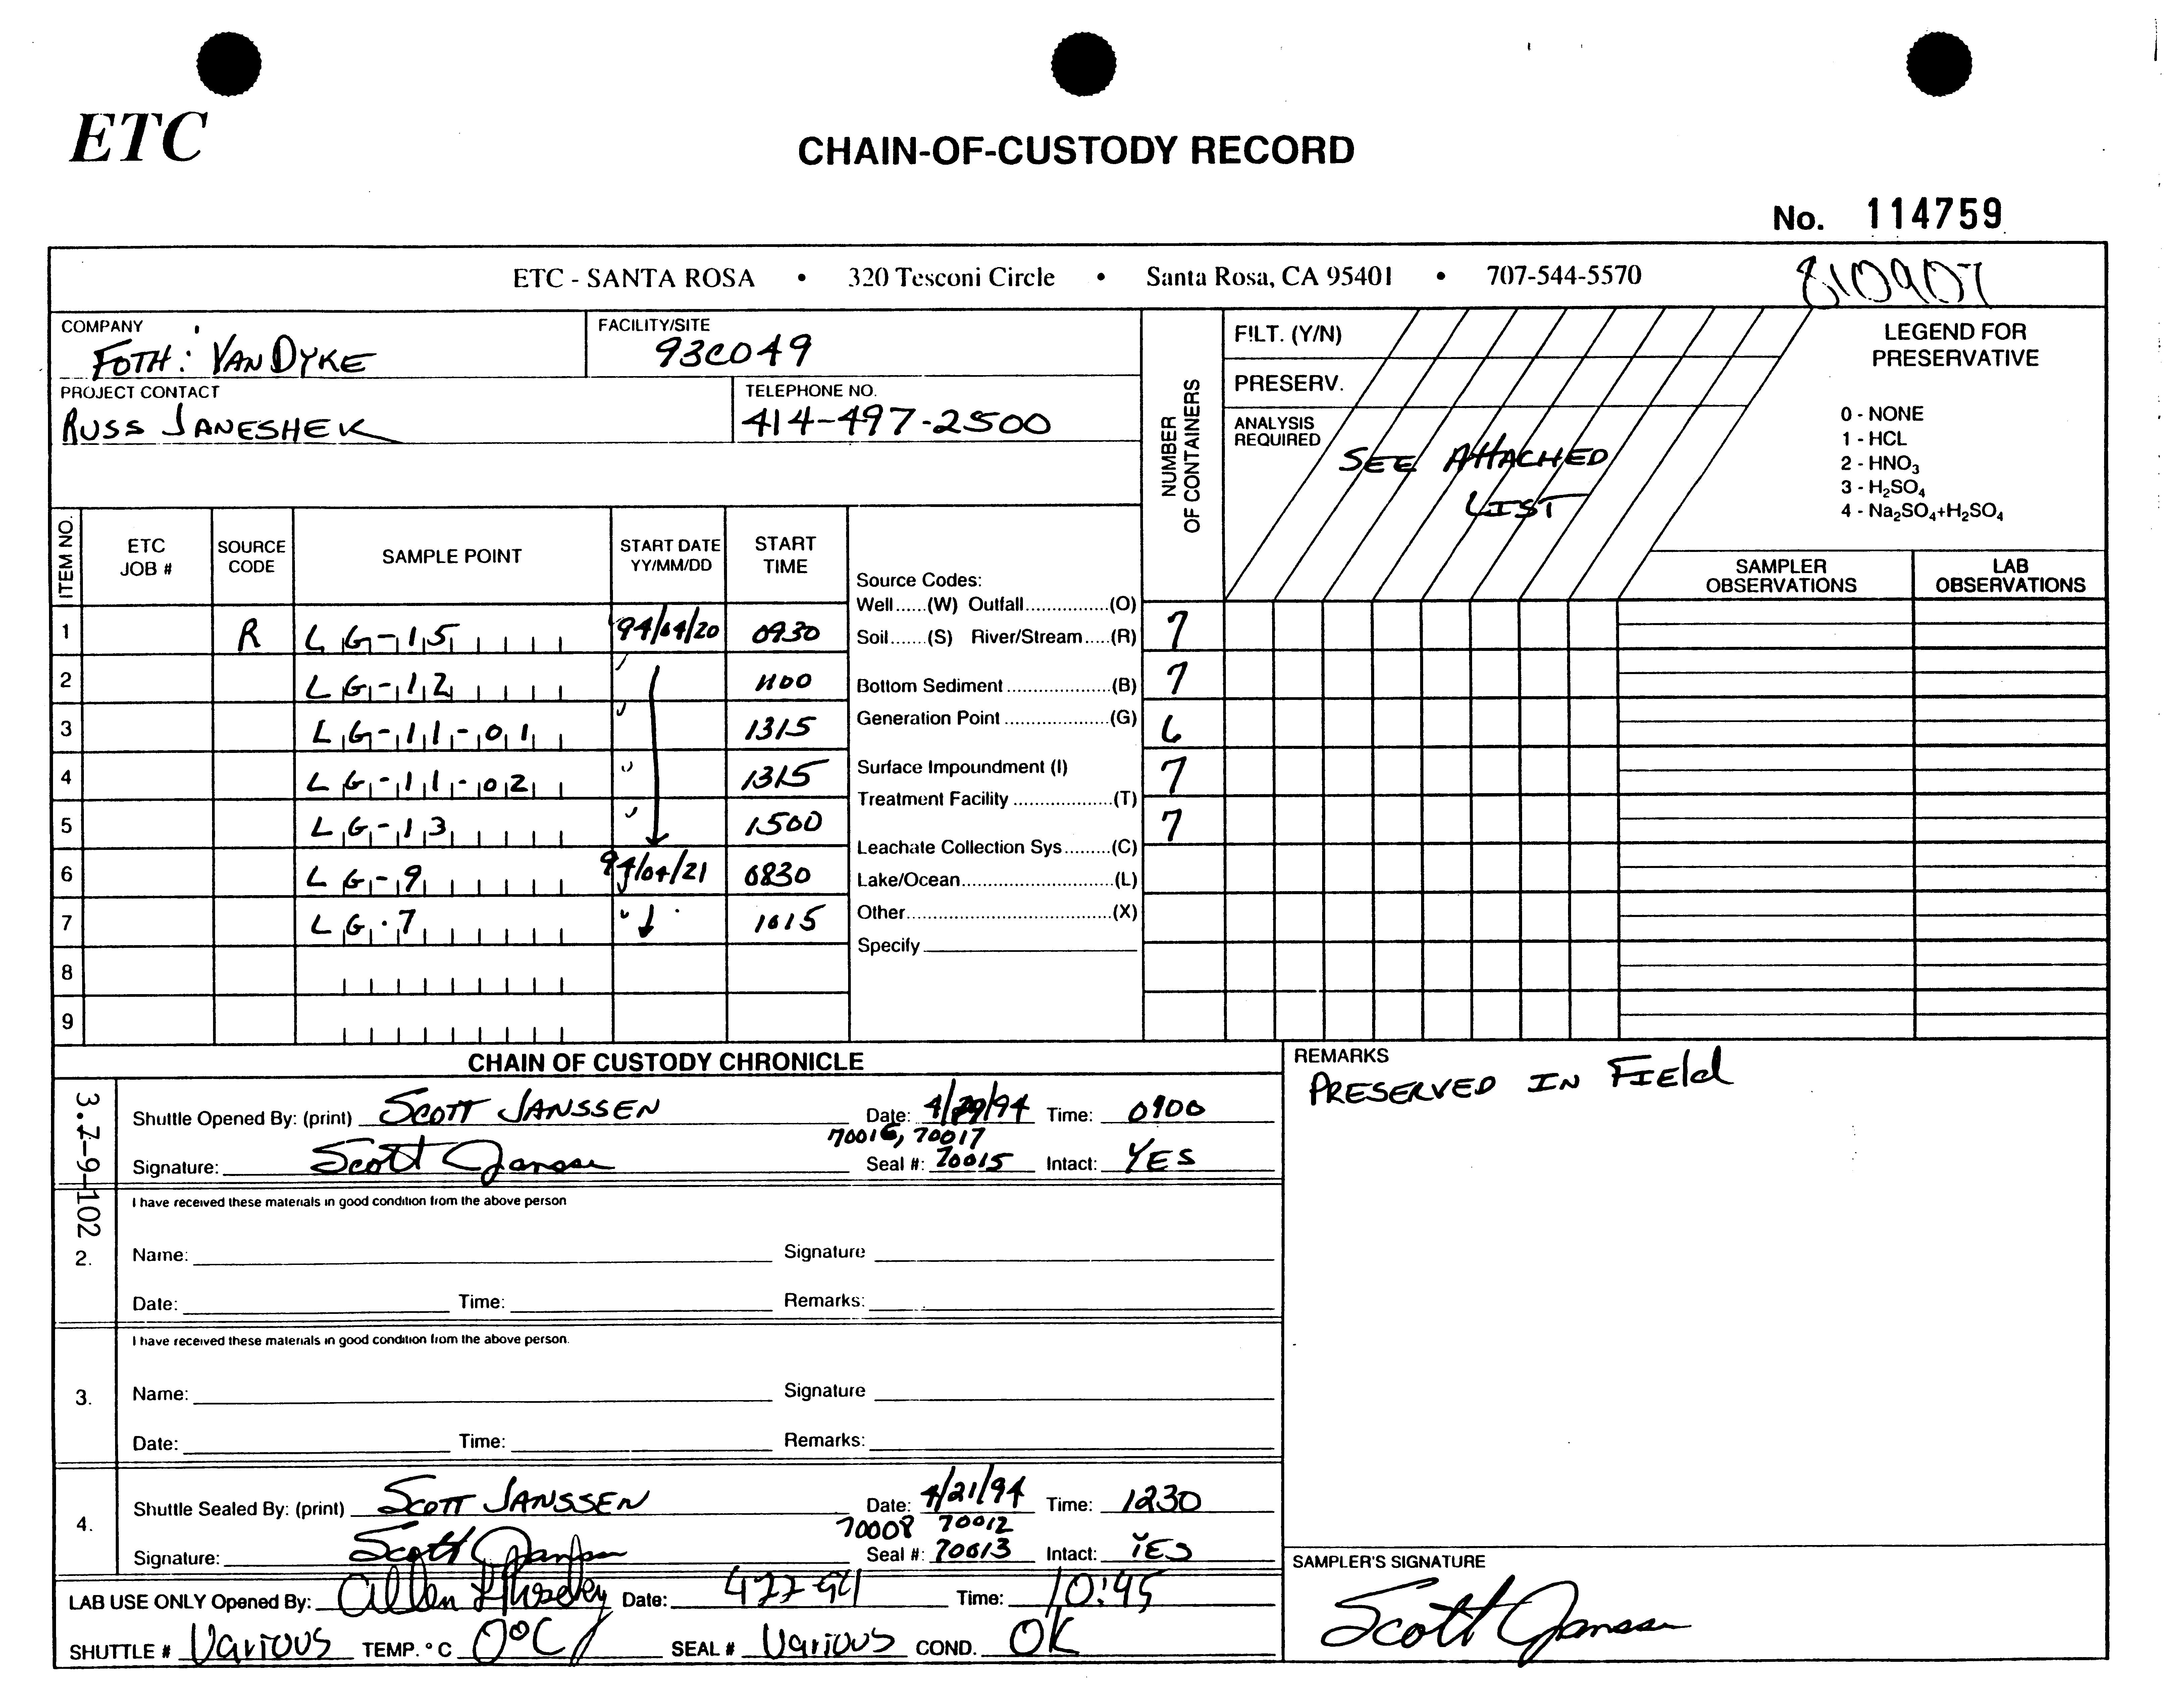 ETC
CHAIN-OF-CUSTODY RECORD
No. 114759
ETC - SANTA ROSA • 320 Tesconi Circle • Santa Rosa, CA 95401 • 707-544-5570
810907
COMPANY
FOTH : VAN DYKE
FACILITY/SITE
93C049
PROJECT CONTACT
RUSS JANESHEK
TELEPHONE NO.
414-497-2500
NUMBER OF CONTAINERS
FILT. (Y/N)
PRESERV.
ANALYSIS REQUIRED
SEE ATTACHED
LIST
LEGEND FOR
PRESERVATIVE
0 - NONE
1 - HCL
2 - HNO3
3 - H2SO4
4 - Na2SO4+H2SO4
ITEM NO. ETC JOB # SOURCE CODE SAMPLE POINT START DATE YY/MM/DD START TIME
SAMPLER OBSERVATIONS LAB OBSERVATIONS
Source Codes:
Well......(W) Outfall...............(O)
Soil.......(S) River/Stream.....(R)
Bottom Sediment....................(B)
Generation Point....................(G)
Surface Impoundment (I)
Treatment Facility...................(T)
Leachate Collection Sys.........(C)
Lake/Ocean.............................(L)
Other.......................................(X)
Specify
1 R LG-15 94/04/20 0930 7
2 LG-12 1100 7
3 LG-11-01 1315 6
4 LG-11-02 1315 7
5 LG-13 1500 7
6 LG-9 94/04/21 0830
7 LG-7 1015
8
9
CHAIN OF CUSTODY CHRONICLE
REMARKS
PRESERVED IN FIELD
3.7-9-102
Shuttle Opened By: (print) SCOTT JANSSEN Date: 4/20/94 Time: 0900
70016, 70017
Signature: Scott Janssen Seal #: 70015 Intact: YES
I have received these materials in good condition from the above person
2. Name: Signature
Date: Time: Remarks:
I have received these materials in good condition from the above person.
3. Name: Signature
Date: Time: Remarks:
4. Shuttle Sealed By: (print) SCOTT JANSSEN Date: 4/21/94 Time: 1230
70008 70012
Signature: Scott Janssen Seal #: 70013 Intact: YES
LAB USE ONLY Opened By: Allen Date: 4-22-94 Time: 10:45
SHUTTLE # Various TEMP. °C 0°C SEAL # Various COND. OK
SAMPLER'S SIGNATURE
Scott Janssen